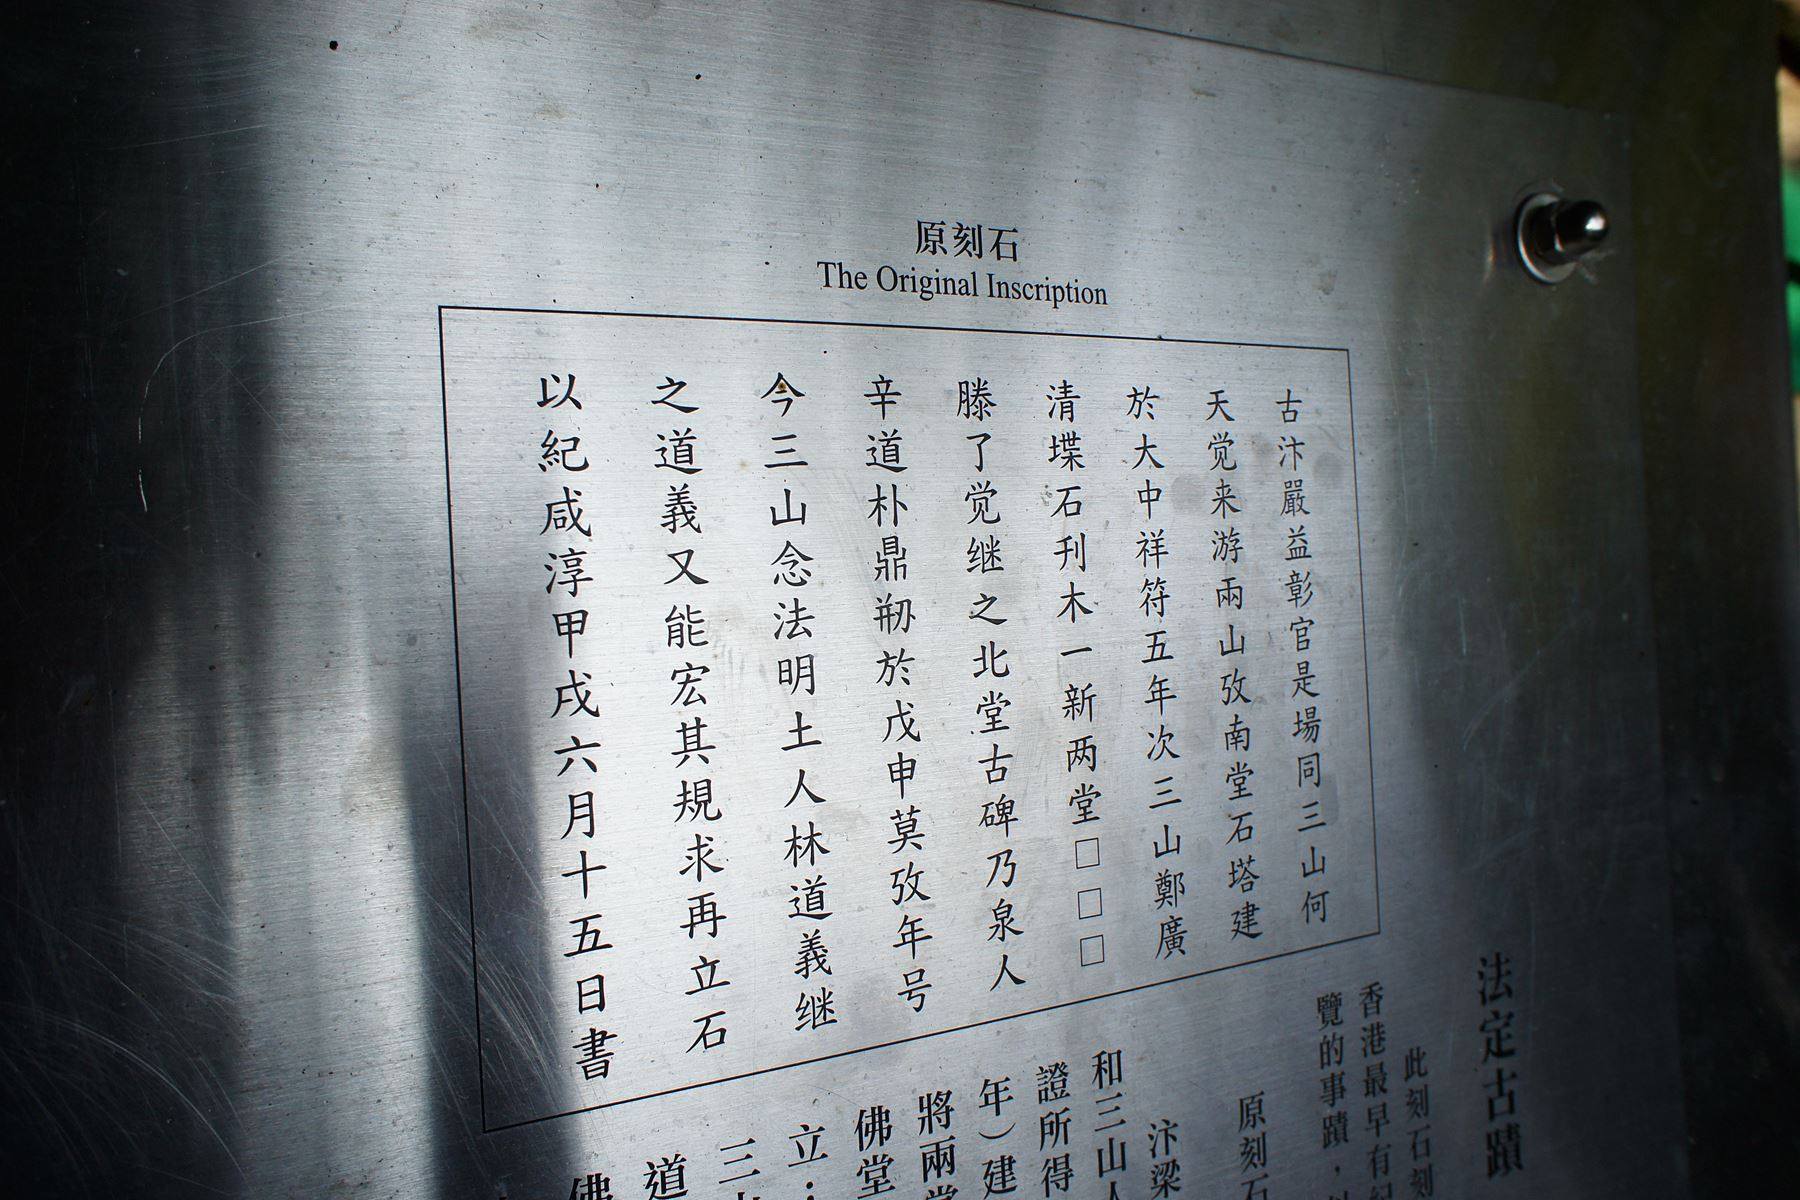 原刻石
The Original Inscription
古汴嚴益彰官是場同三山何
天觉来游兩山攷南堂石塔建
於大中祥符五年次三山鄭廣
清堞石刊木一新两堂□□□
滕了觉继之北堂古碑乃泉人
辛道朴鼎刱於戊申莫攷年号
今三山念法明土人林道義继
之道義又能宏其規求再立石
以紀咸淳甲戌六月十五日書
法定古蹟
此刻石刻
香港最早有紀
覽的事蹟，
原刻石
汴梁
和三山人
證所得
年）建
將兩堂
佛堂
立；
三
道
佛